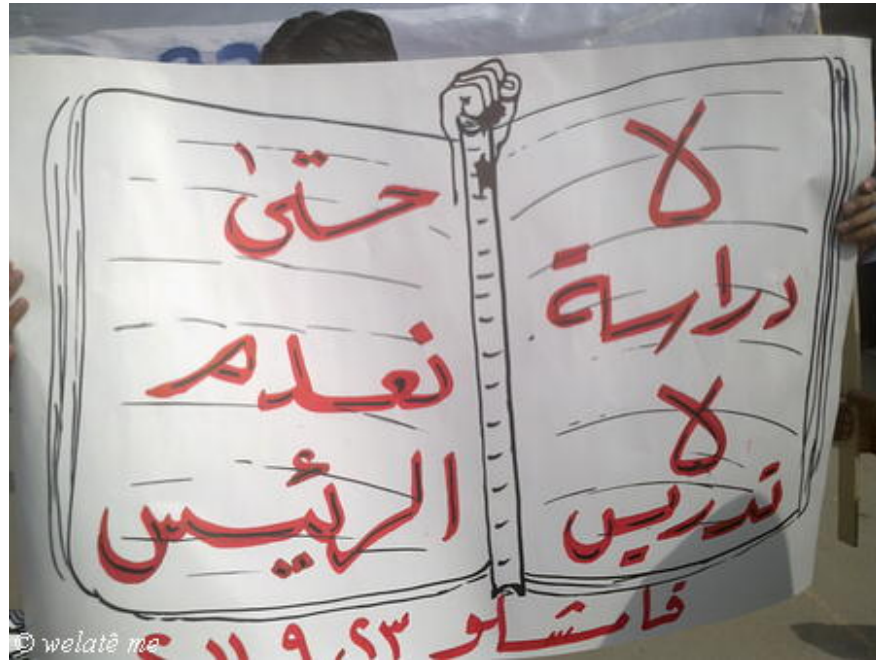 لا
دراسة
لا
تدريس
حتى
نعدم
الرئيس
قامشلو ٢٣ ٩
© welatê me